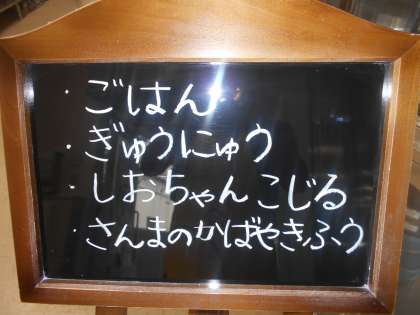 ・ごはん
・ぎゅうにゅう
・しおちゃんこじる
・さんまのかばやきふう